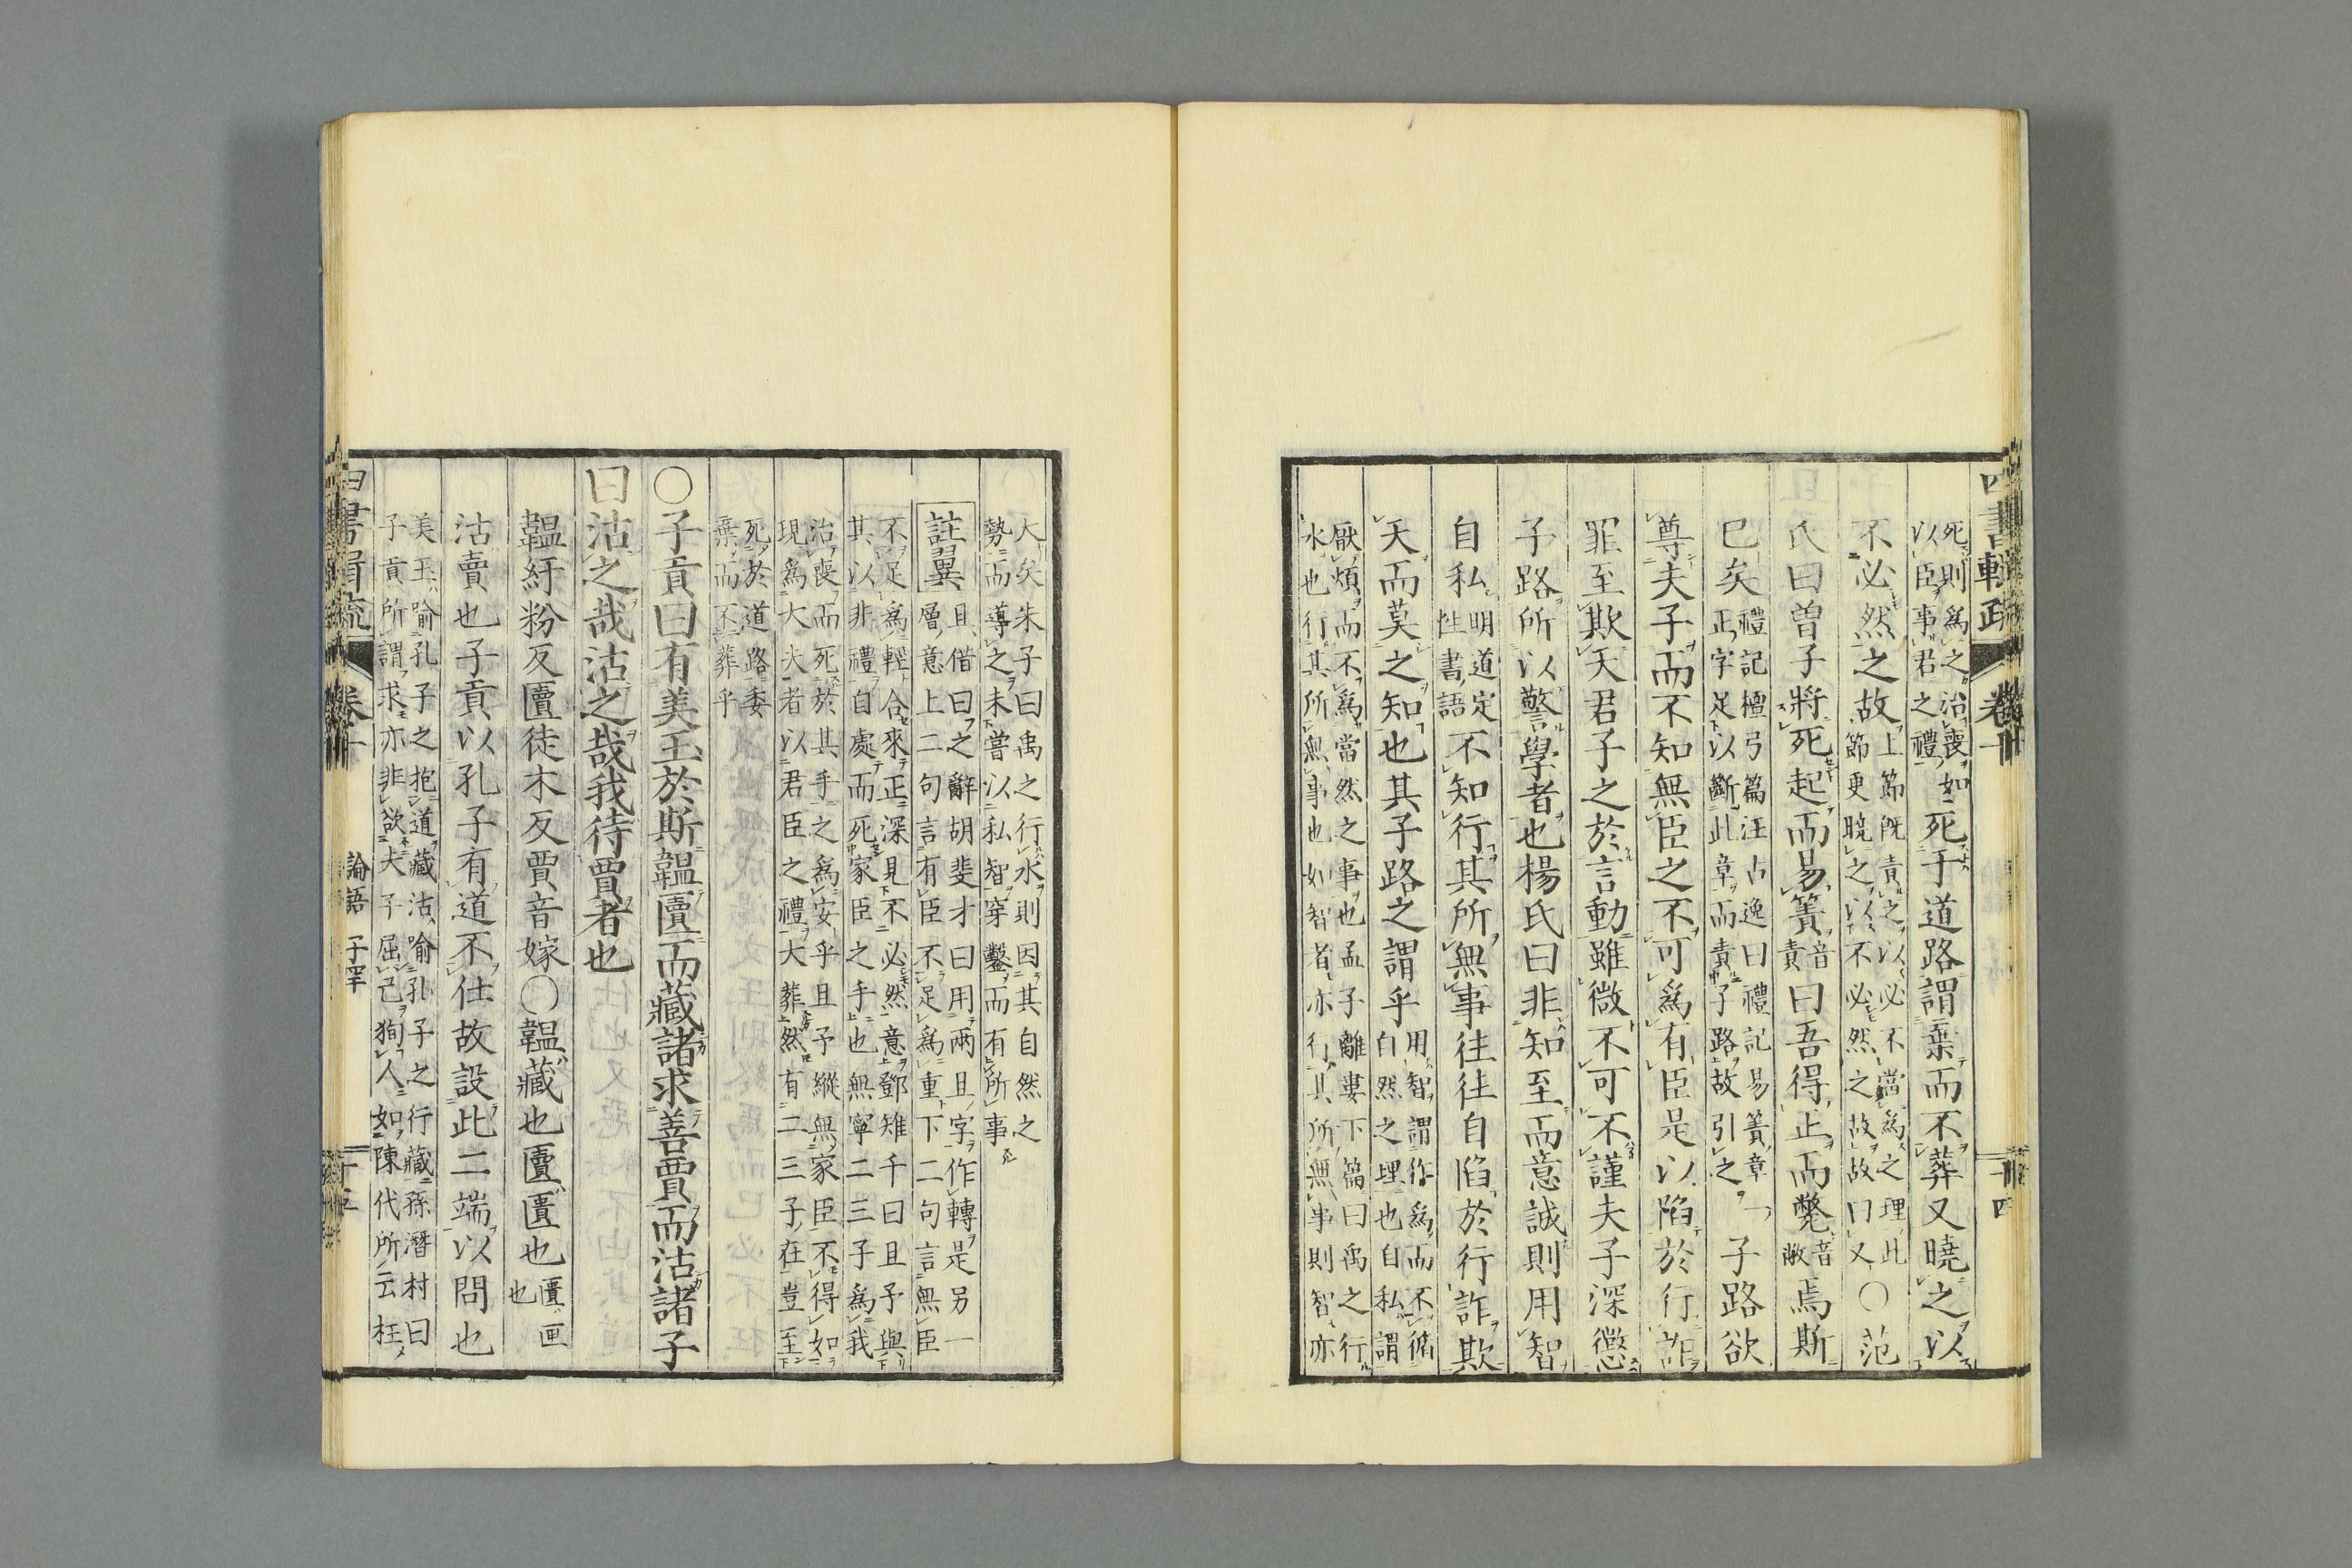 四書輯疏 卷十 十四
死則爲之治喪如
以臣事君之禮
死于道路謂棄而不葬又曉之以
不必然之故
上節既責之以必不當爲之理此
節更曉之以不必然之故故曰又
○范
氏曰曾子將死起而易簀
音
責
曰吾得正而斃
音
敝
焉斯
已矣
禮記檀弓篇汪占逸曰禮記易簀章
正字足以斷此章而責子路故引之
子路欲
尊夫子而不知無臣之不可爲有臣是以陷於行詐
罪至欺天君子之於言動雖微不可不謹夫子深懲
子路所以警學者也楊氏曰非知至而意誠則用智
自私
明道定
性書語
不知行其所無事往往自陷於行詐欺
天而莫之知也其子路之謂乎
用智謂作爲而不循
自然之理也自私謂
厭煩而不爲當然之事也孟子離婁下篇曰禹之行
水也行其所無事也如智者亦行其所無事則智亦
大矣朱子曰禹之行水則因其自然之
勢而導之未嘗以私智穿鑿而有所事
註翼
且借曰之辭胡斐才曰用兩且字作轉是另一
層意上二句言有臣不足爲重下二句言無臣
不足爲輕合來正深見不必然意鄧雉千曰且予與
其以非禮自處而死家臣之手也無寧二三子爲我
治喪而死於其手之爲安乎且予縱無家臣不得如
現爲大夫者以君臣之禮大葬然有二三子在豈至
死於道路委
棄而不葬乎
○子貢曰有美玉於斯韞匵而藏諸求善賈而沽諸子
曰沽之哉沽之哉我待賈者也
韞紆粉反匵徒木反賈音嫁○韞藏也匵匱也
匱匣
也
沽賣也子貢以孔子有道不仕故設此二端以問也
美玉喻孔子之抱道藏沽喻孔子之行藏孫潛村曰
子貢所謂求亦非欲夫子屈己狥人如陳代所云枉
四書輯疏 卷十 論語 子罕 十五